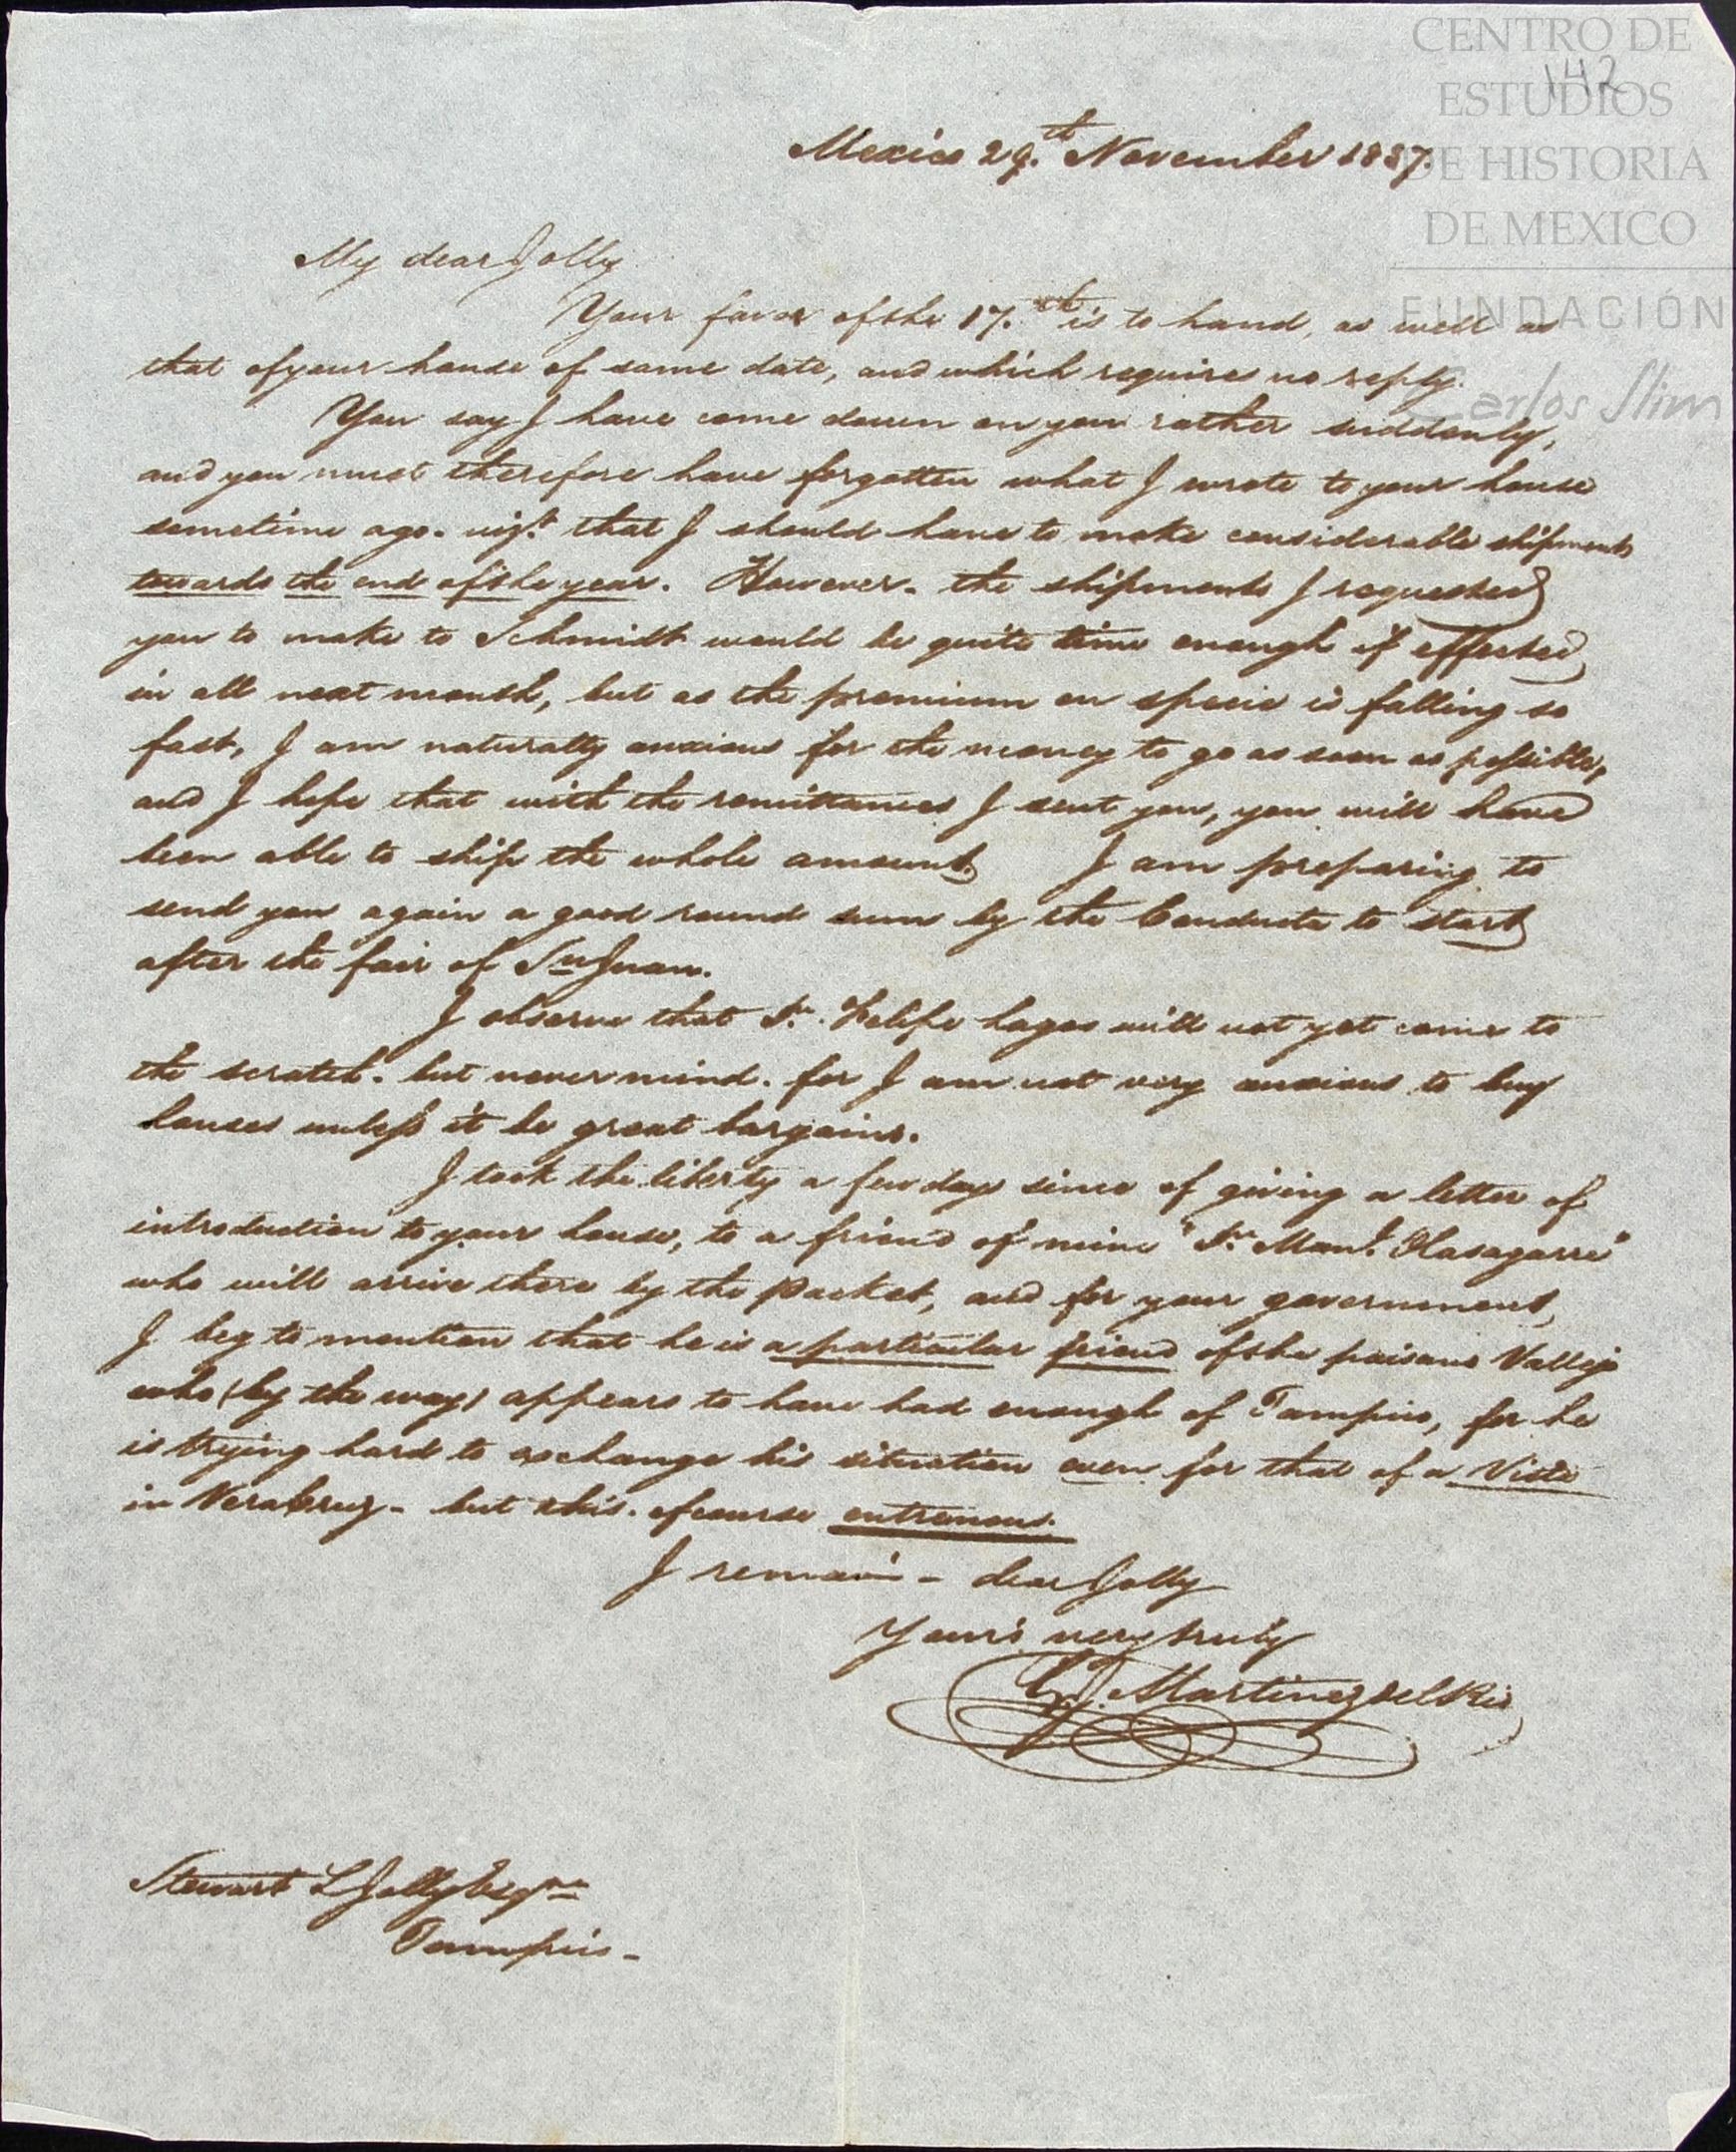 CENTRO DE
ESTUDIOS
DE HISTORIA
DE MEXICO
FUNDACIÓN
Carlos Slim
142
Mexico 29.th November 1837.
My dear Jolly
Your favor of the 17.th is to hand, as well as
that of your house of same date, and which requires no reply.
You say I have come down on you rather suddenly,
and you must therefore have forgotten what I wrote to your house
sometime ago. vizt. that I should have to make considerable shipments
towards the end of the year. However. the shipments I requested
you to make to Schmidt would be quite time enough if effected
in all next month, but as the premium on specie is falling so
fast, I am naturally anxious for the money to go as soon as possible,
and I hope that with the remittances I sent you, you will have
been able to ship the whole amount. I am preparing to
send you again a good round sum by the Conducta to start
after the fair of Sn Juan.
I observe that Sr. Felipe Lagos will not yet come to
the scratch. but never mind. for I am not very anxious to buy
houses unless it be great bargains.
I took the liberty a few days since of giving a letter of
introduction to your house, to a friend of mine "Sr. Manl.
who will arrive there by the packet, and for your government,
I beg to mention that he is a particular friend of the paisano Vallejo
who (by the way) appears to have had enough of Tampico, for he
is trying hard to exchange his situation even for that of a Vista
in VeraCruz - but this. of course entrenous.
I remain - dear Jolly
Your's very truly
Martinez del Rio
Stewart L Jolly Esqre
Tampico -